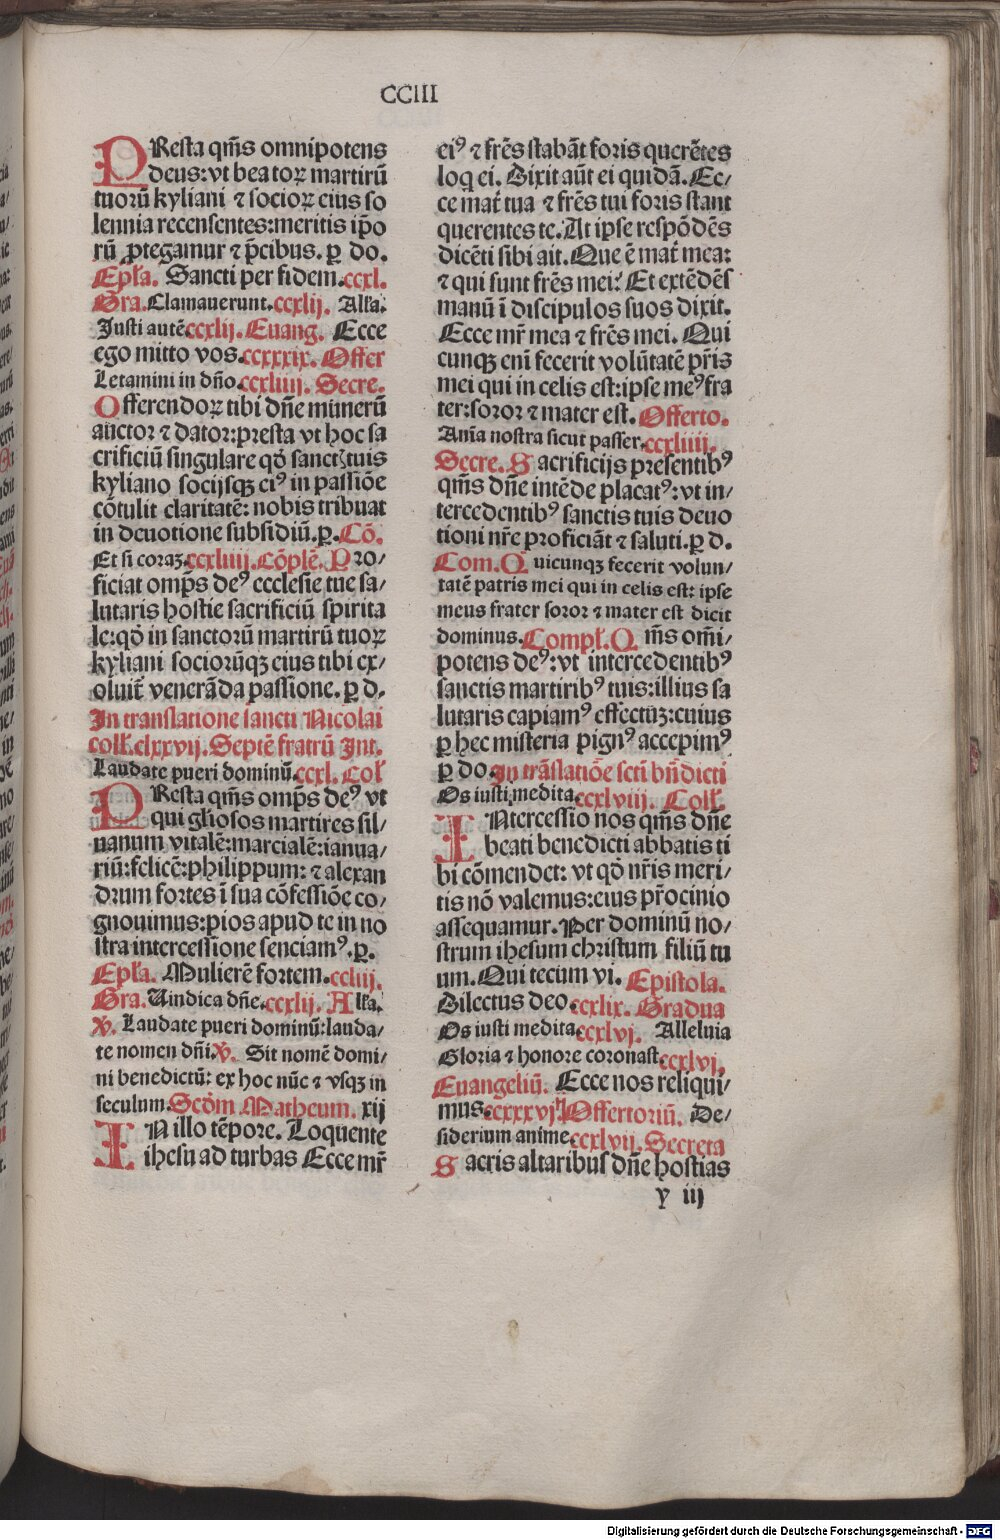 CCIII
PResta qm̄s omnipotens
deus: vt beatoꝝ martirū
tuorū kyliani ⁊ socioꝝ eius so
lennia recensentes: meritis ip̄o
rū ꝓtegamur ⁊ p̄cibus. ꝑ do.
Ep̄la. Sancti per fidem. ccxl.
Gra. Clamauerunt. ccxlij. Alła.
Justi autē ccxlij. Euang. Ecce
ego mitto vos. ccxxxix. Offer
Letamini in dn̄o. ccxliiij. Secre.
Offerendoꝝ tibi dn̄e munerū
auctor ⁊ dator: presta vt hoc sa
crificiū singulare qd̓ sanctꝭ tuis
kyliano socijsqꝫ eiꝰ in passiōe
cōtulit claritatē: nobis tribuat
in deuotione subsidiū. ꝑ. Cō.
Et si coraꝫ. ccxliiij. Cōplē. Pro/
ficiat omp̄s deꝰ ecclesie tue sa/
lutaris hostie sacrificiū spirita
le: qd̓ in sanctorū martirū tuoꝝ
kyliani sociorūqꝫ eius tibi ex/
oluit̄ venerāda passione. ꝑ d.
In translatione sancti Nicolai
coll̄. clxxvij. Septē fratrū Int.
Laudate pueri dominū. ccxl. Col̄
PResta qm̄s omp̄s deꝰ vt
qui gl̄iosos martires sil/
uanum vitalē: marcialē: ianua/
riū: felicē: philippum: ⁊ alexan
drum fortes ī sua cōfessiōe co/
gnouimus: pios apud te in no
stra intercessione senciamꝰ. ꝑ.
Ep̄la. Mulierē fortem. ccliij.
Gra. Uindica dn̄e. ccxlij. Alła.
℣. Laudate pueri dominū: lauda/
te nomen dn̄i ℣. Sit nomē domi/
ni benedictū: ex hoc nūc ⁊ vsqꝫ in
seculum. Scd̄m Matheum. xij
IN illo tēpore. Loquente
ihesu ad turbas Ecce mr̄
eiꝰ ⁊ fr̄es stabāt foris querētes
loq̄ ei. Dixit aūt ei quidā. Ec/
ce mat̄ tua ⁊ fr̄es tui foris stant
querentes te. At ipse respōdēs
dicēti sibi ait. Que ē mat̄ mea:
⁊ qui sunt fr̄es mei? Et extēdēs
manū ī discipulos suos dixit.
Ecce mr̄ mea ⁊ fr̄es mei. Qui
cunqꝫ eni̅ fecerit volūtatē pr̄is
mei qui in celis est: ipse meꝰ fra
ter: soror ⁊ mater est. Offerto.
Anīa nostra sicut passer. ccxliiij.
Secre. Sacrificijs presentibꝰ
qm̄s dn̄e intēde placatꝰ: vt in/
tercedentibꝰ sanctis tuis deuo
tioni nr̄e proficiāt ⁊ saluti. ꝑ d.
Com. Quicunqꝫ fecerit volun/
tatē patris mei qui in celis est: ipse
meus frater soror ⁊ mater est dicit
dominus. Compl̄. Qm̄s om̄i/
potens deꝰ: vt intercedentibꝰ
sanctis martiribꝰ tuis: illius sa
lutaris capiamꝰ effectuꝫ: cuius
ꝑ hec misteria pignꝰ accepimꝰ
ꝑ do. In trāslatiōe sct̄i bn̄dicti
Os iusti medita. ccxlviij. Coll̄.
INtercessio nos qm̄s dn̄e
beati benedicti abbatis ti
bi cōmendet: vt qd̓ nr̄is meri/
tis nō valemus: eius pr̄ocinio
assequamur. Per dominū no/
strum ihesum christum filiū tu
um. Qui tecum vi. Epistola.
Dilectus deo. ccxlix. Gradua
Os iusti medita. ccxlvj. Alleluia
Gloria ⁊ honore coronast. ccxlvj.
Euangeliū. Ecce nos reliqui/
mus. ccxxxvj Offertoriū. De/
siderium anime. ccxlvij. Secreta
Sacris altaribus dn̄e hostias
y iij
Digitalisierung gefördert durch die Deutsche Forschungsgemeinschaft - DFG